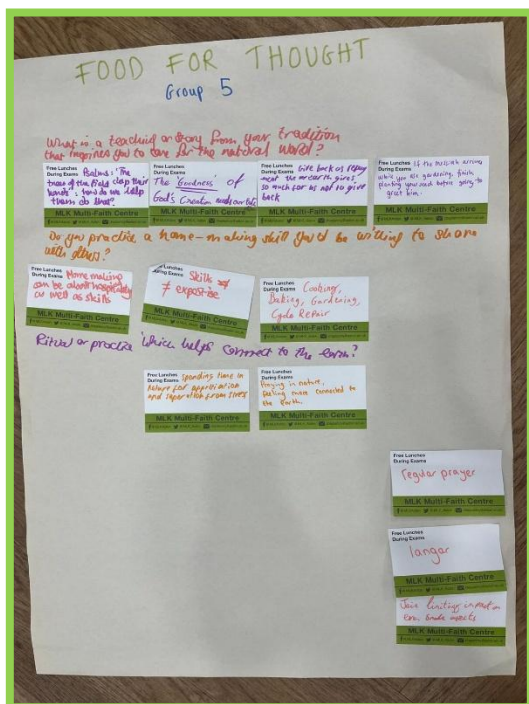 FOOD FOR THOUGHT
Group 5
What is a teaching or story from your tradition
that inspires you to care for the natural world?
Free Lunches
During Exams
Psalms: 'The
trees of the field clap their
hands': how do we help
them do that?
MLK Multi-Faith Centre
Free Lunches
During Exams
The 'Goodness' of
God's Creation
MLK Multi-Faith Centre
Free Lunches
During Exams
Give back as
the earth gives
so much for us not to give
back
MLK Multi-Faith Centre
Free Lunches
During Exams
If the messiah arrives
while you are gardening, finish
planting your seed before going to
greet him.
MLK Multi-Faith Centre
Do you practice a home-making skill you'd be willing to share
with others?
Free Lunches
During Exams
Home making
can be about hospitality
as well as skills
MLK Multi-Faith Centre
Free Lunches
During Exams
Skills
≠ expertise
MLK Multi-Faith Centre
Free Lunches
During Exams
Cooking,
Baking, Gardening,
Cycle Repair
MLK Multi-Faith Centre
Ritual or practice which helps connect to the earth?
Free Lunches
During Exams
Spending time in
nature for appreciation
and separation from stress
MLK Multi-Faith Centre
Free Lunches
During Exams
Praying in nature,
feeling more connected to
the Earth.
MLK Multi-Faith Centre
Free Lunches
During Exams
regular prayer
MLK Multi-Faith Centre
Free Lunches
During Exams
langar
MLK Multi-Faith Centre
limiting impact on
MLK Multi-Faith Centre